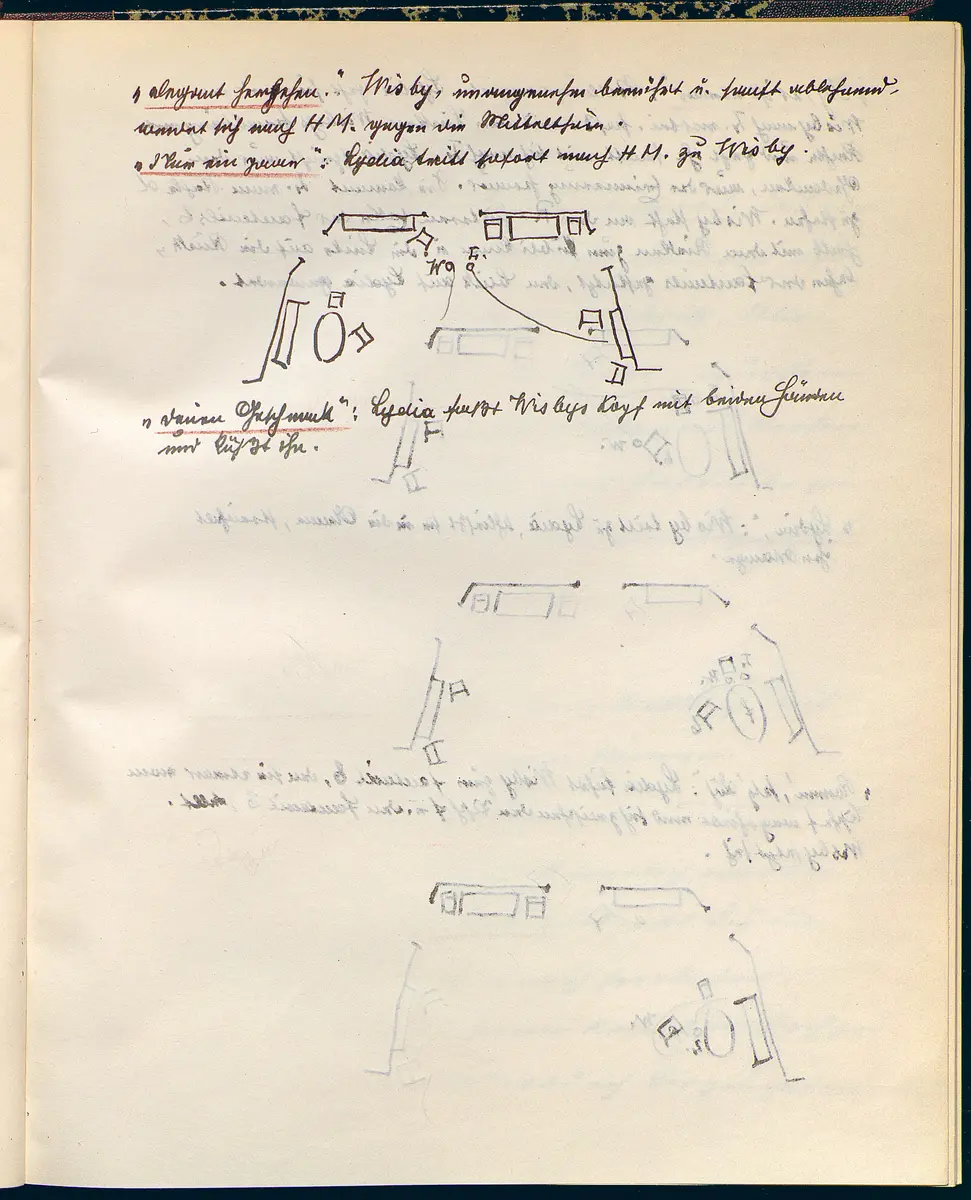 „elegant hersehen." Wisby, unangenehm berührt u. sanft ablehnend,
wendet sich nach H M. gegen die Mittelthüre.
„Nur ein paar": Lydia tritt sofort nach H M. zu Wisby.
W L.
„deinen Geschmack": Lydia faßt Wisbys Kopf mit beiden Händen
und küßt ihn.